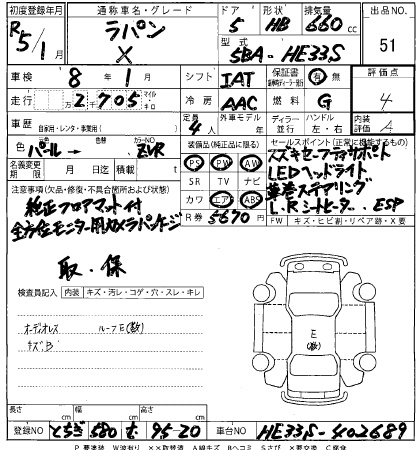 初度登録年月 通称車名・グレード ドア 形状 排気量 出品NO
R5/1月 ラパン 5 HB 660cc
X 型式 5BA-HE33S 51
車検 8年1月 シフト IAT 保証書 有 無 評価点
走行 2千705 マイル キロ 冷房 AAC 燃料 G 4
車歴 自家用・レンタ・事業用( ) 定員 4人 外車モデル 年 ディーラー 並行 ハンドル 左・右 内装評価 A
色 パール→ 色替 カラーNO ZVR 装備品(純正品に限る) セールスポイント(正常に作動すること)
名義変更期限 月 日 迄 積載 t PS PW AW スズキセーフティサポート
注意事項(欠品・修復・不具合箇所および状態) SR TV ナビ LEDヘッドライト
純正フロアマット付 カワ エア ABS 革巻ステアリング
全方位モニター用カメラパッケージ R券 5670円 L.Rシートヒーター ESP
FW キズ・ヒビ割・リペア跡・X要
取・保
検査員記入 内装 キズ・汚レ・コゲ・穴・スレ・キレ
オーディオレス ルーフE(数)
キズB
E
(数)
長さ cm 幅 cm 高さ cm
登録NO とちぎ 580 む 95-20 車台NO HE33S-402689
P 要塗装 W波有り ××取替済 A線キズ Bヘコミ Sさび X要交換 C腐食